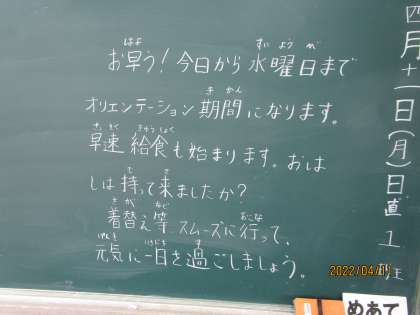 お早う！今日から水曜日まで
オリエンテーション期間になります。
早速給食も始まります。おは
しは持って来ましたか？
着替え等スムーズに行って、
元気に一日を過ごしましょう。
四月十一日(月)日直1班
めあて